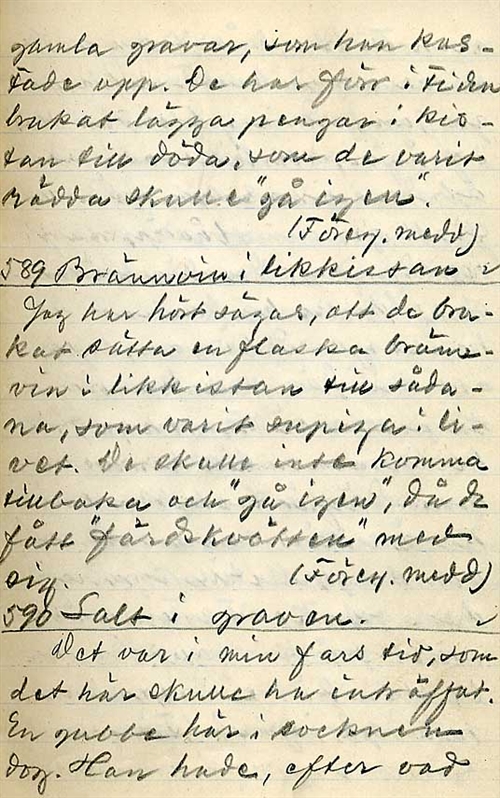 gamla gravar, som han kas-
tade upp. De har förr i tiden
brukat lägga pengar i kis-
tan till döda, som de varit
rädda skulle "gå igen".
(Föreg. medd)
589 Brännvin i likkistan
Jag har hört sägas, att de bru-
kat sätta en flaska bränn-
vin i likkistan till såda-
na, som varit supiga i li-
vet. De skulle inte komma
tillbaka och "gå igen", då de
fått "färdskvätten" med
sig. (Föreg. medd)
590 Salt i graven.
Det var i min fars tid, som
det här skulle ha inträffat.
En gubbe här i socknen
dog. Han hade, efter vad